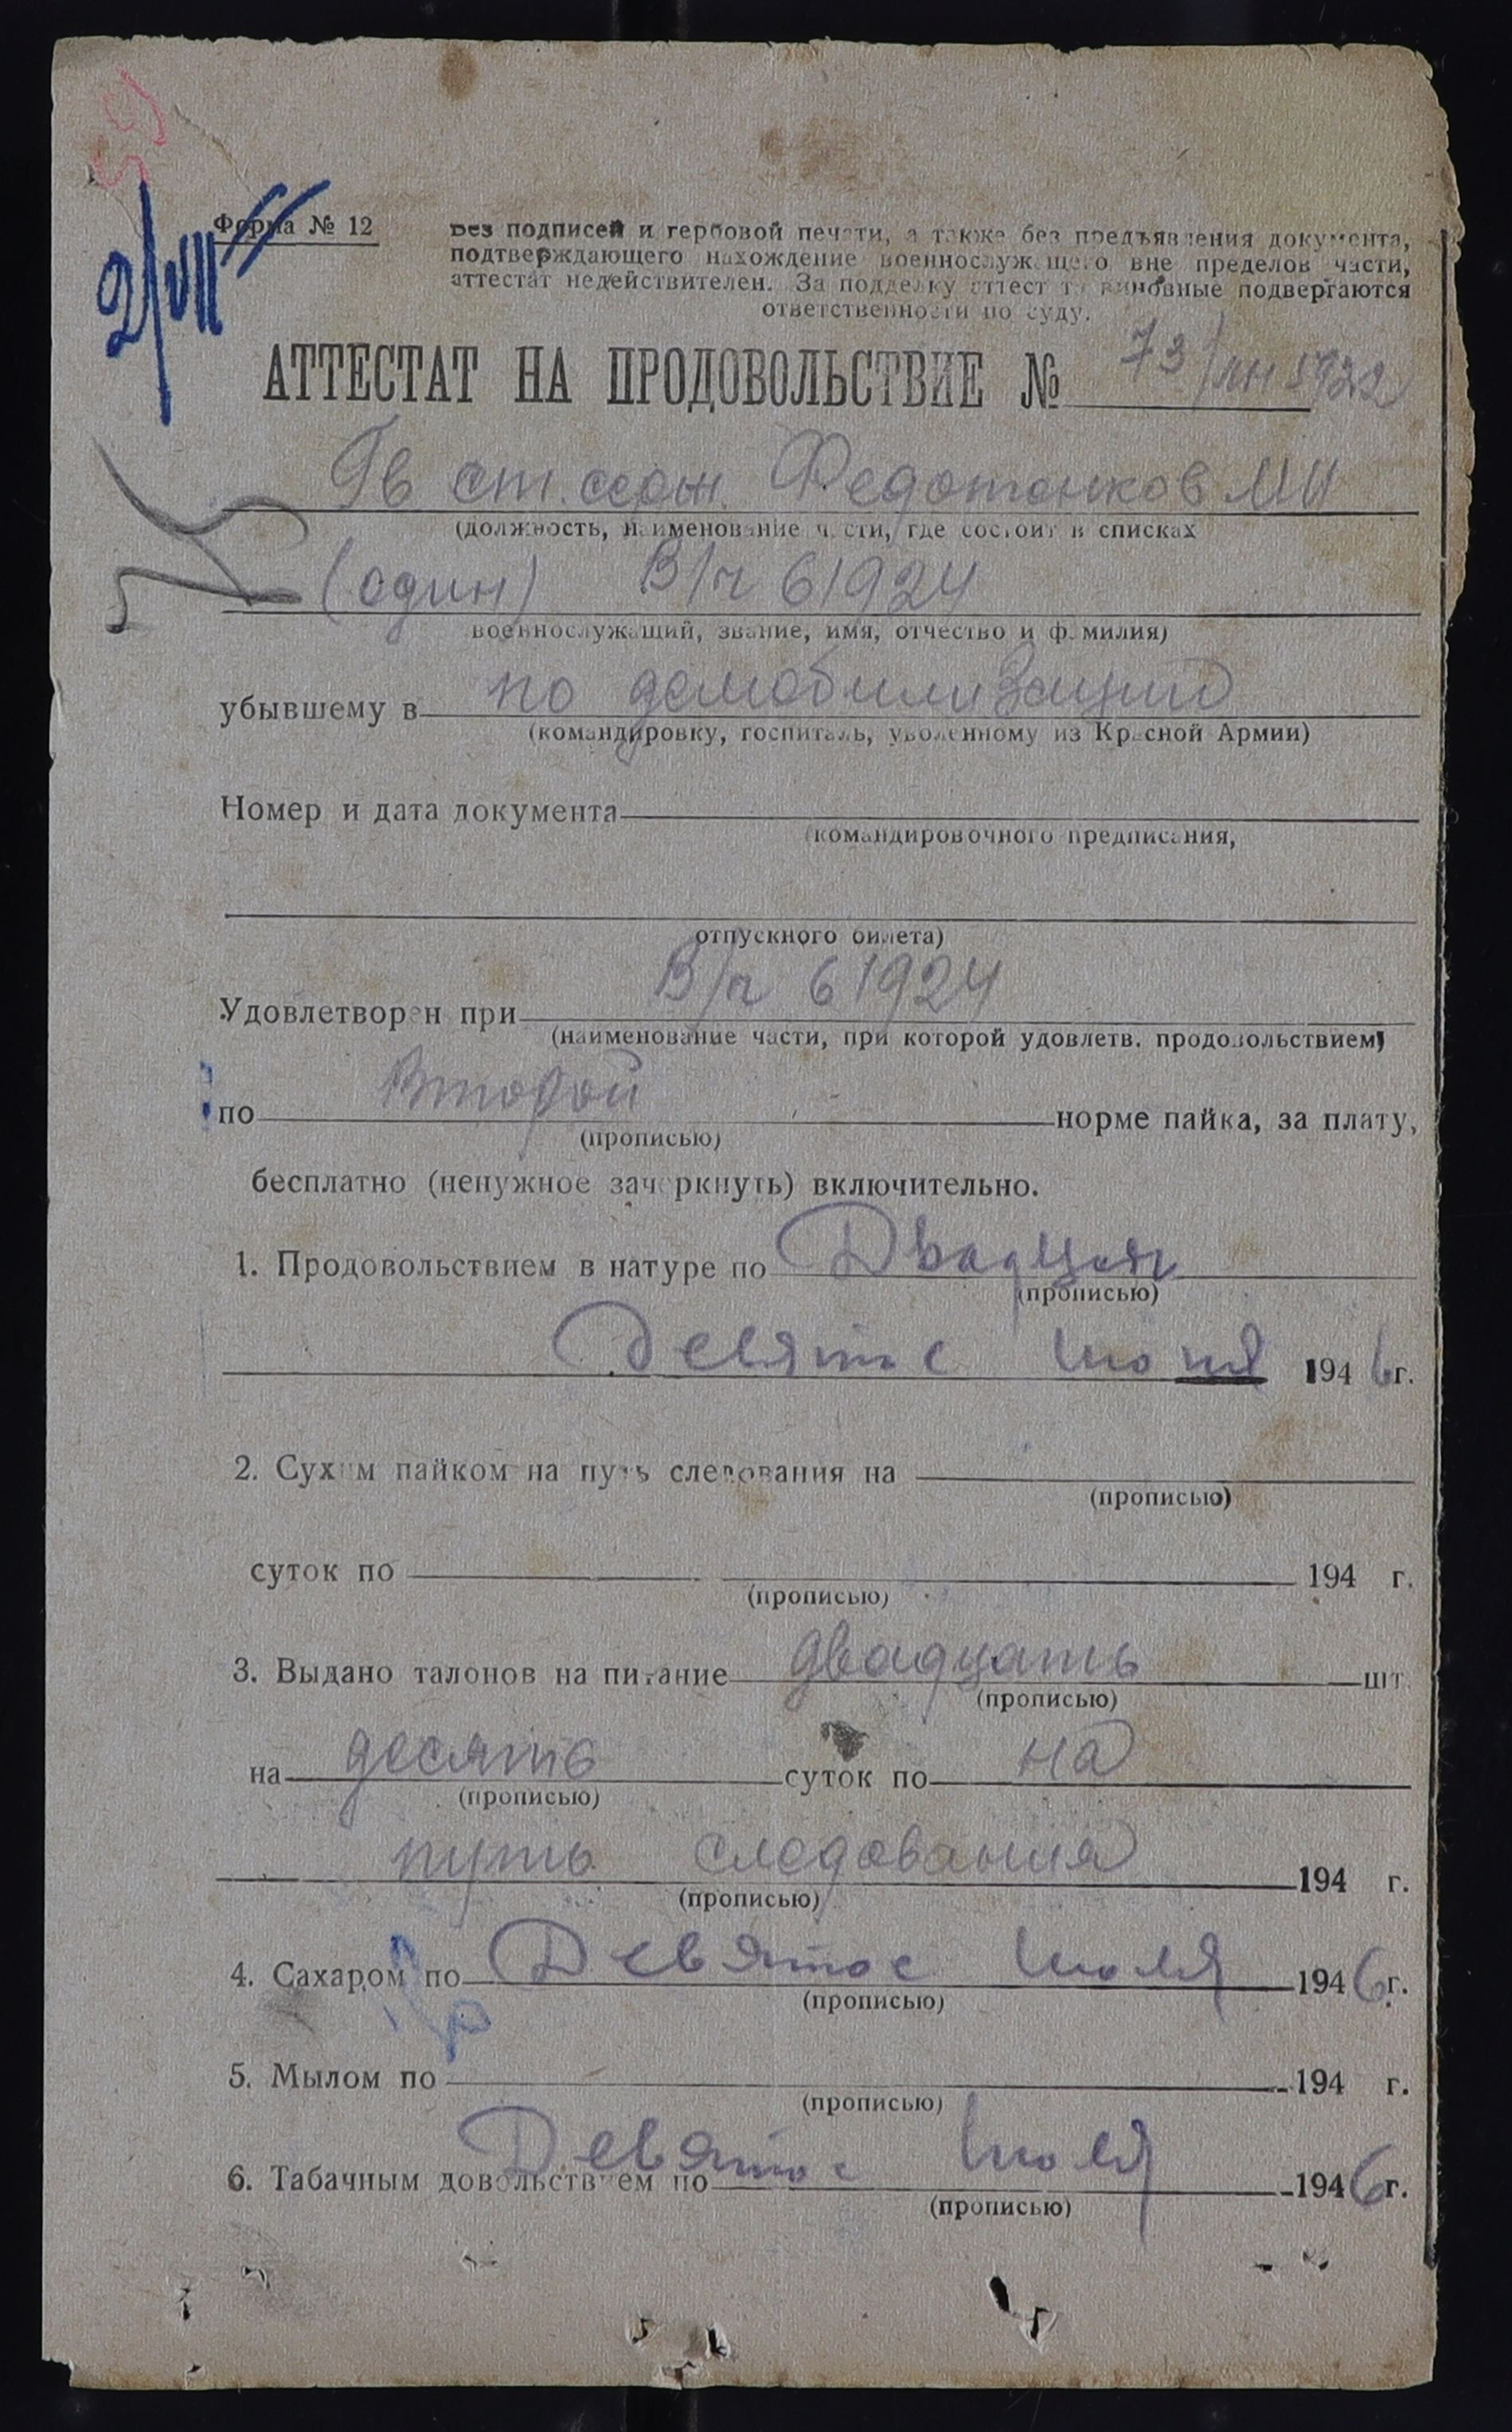 2/VII
Форма № 12
Без подписей и гербовой печати, а также без предъявления документа,
подтверждающего нахождение военнослужащего вне пределов части,
аттестат недействителен. За подделку аттестата виновные подвергаются
ответственности по суду.
АТТЕСТАТ НА ПРОДОВОЛЬСТВИЕ № 73
Гв ст. серж. Федотенков М И
(должность, наименование части, где состоит в списках
(один) В/ч 61924
военнослужащий, звание, имя, отчество и фамилия)
убывшему в по демобилизации
(командировку, госпиталь, уволенному из Красной Армии)
Номер и дата документа
(командировочного предписания,
отпускного билета)
В/ч 61924
Удовлетворен при
(наименование части, при которой удовлетв. продовольствием)
по Второй норме пайка, за плату,
(прописью)
бесплатно (ненужное зачеркнуть) включительно.
1. Продовольствием в натуре по Двадцать
(прописью)
Девятое июня 1946 г.
2. Сухим пайком на путь следования на
(прописью)
суток по 194 г.
(прописью)
3. Выдано талонов на питание двадцать шт.
(прописью)
на десять суток по на
(прописью)
путь следования 194 г.
(прописью)
4. Сахаром по Девятое июля 1946 г.
(прописью)
5. Мылом по 194 г.
(прописью)
6. Табачным довольствием по Девятое июля 1946 г.
(прописью)